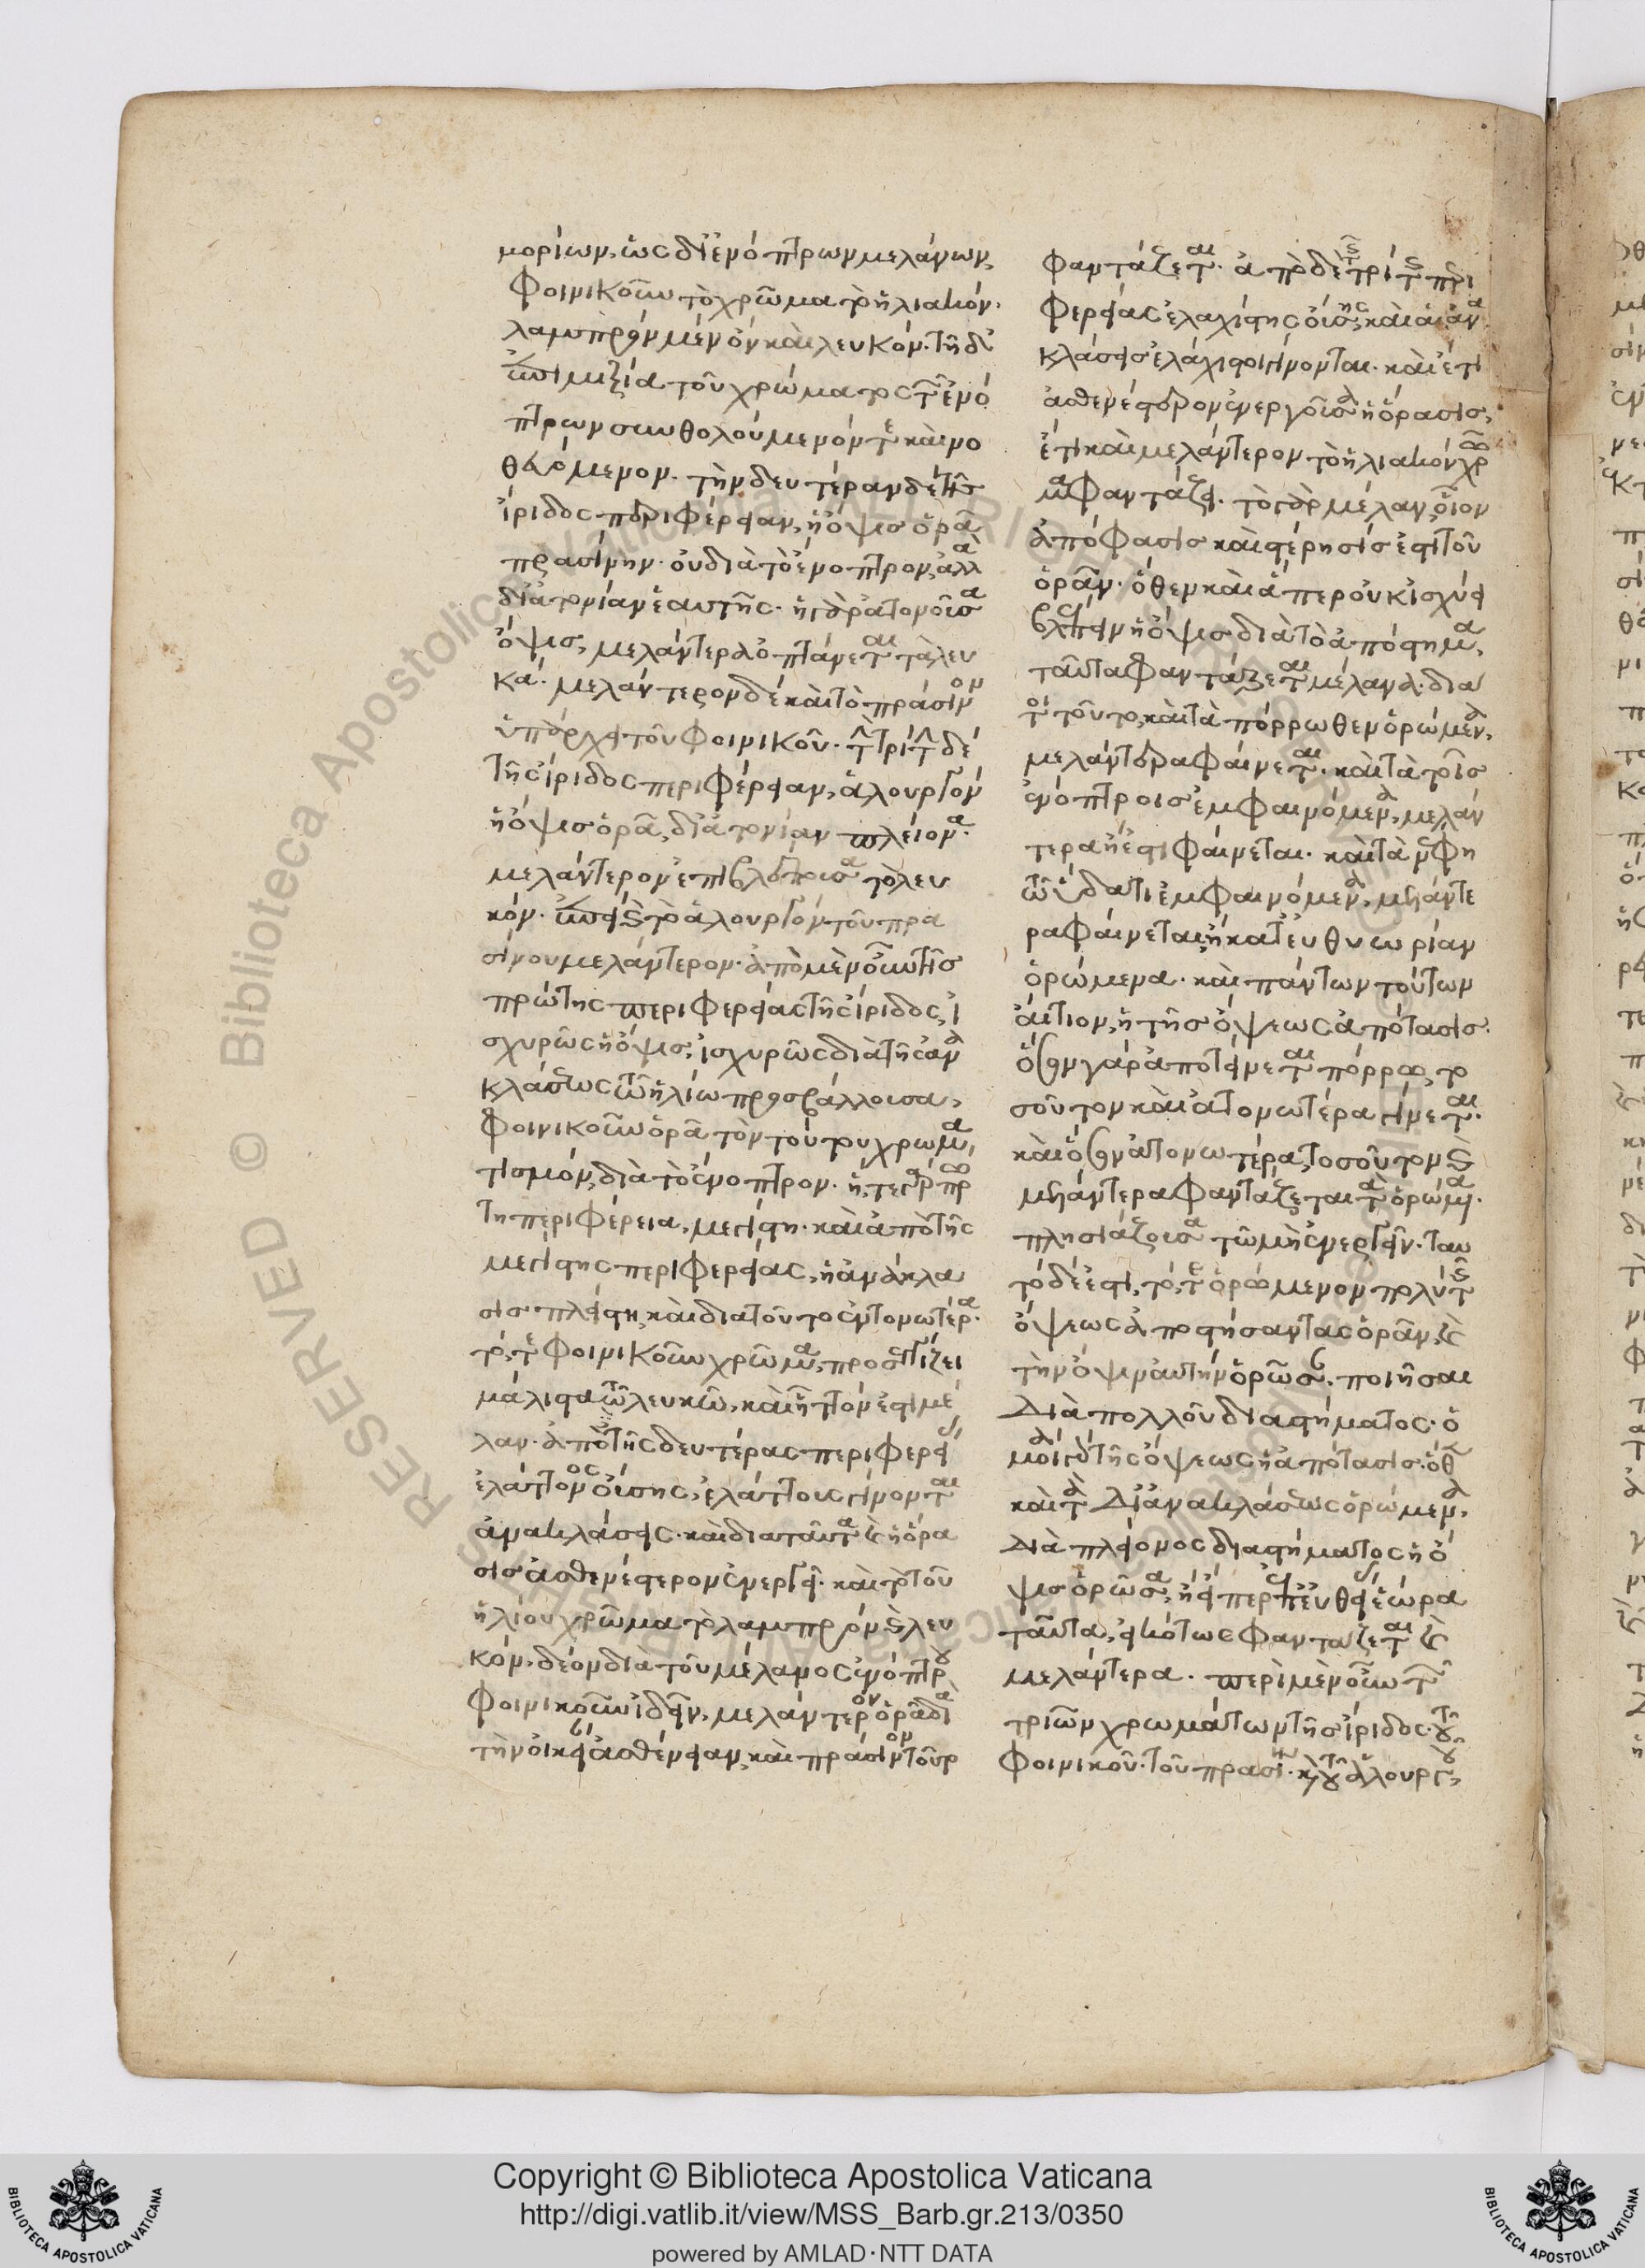 μορίων, ὡς δι' ἐνόπτρων μελάνων,
φοινικοῦν τὸ χρῶμα τὸ ἡλιακόν.
λαμπρὸν μὲν ὂν καὶ λευκόν. τῆ δ'
ἐπιμιξία τοῦ χρώματος τῶν ἐνό
πτρων συνθολούμενόν τε καὶ νο
θευόμενον. τὴν δευτέραν δὲ τῆς
ἴριδος περιφέρειαν, ἡ ὄψις ὁρᾶ
πρασίνην. οὐ διὰ τὸ ἔνοπτρον, ἀλλὰ
δι' ἀτονίαν ἑαυτῆς. ἡ γὰρ ἀτονοῦσα
ὄψις, μελάντερα ὀπτάνεται τὰ λευ
κά. μελάντερον δὲ καὶ τὸ πράσινον
ὑπάρχει τοῦ φοινικοῦ. τὴν τρίτην δὲ
τῆς ἴριδος περιφέρειαν, ἁλουργὸν
ἡ ὄψις ὁρᾶ, δι' ἀτονίαν πλείονα.
μελάντερον ἐπιβλέπουσα τὸ λευ
κόν. ἐπεὶ καὶ τὸ ἁλουργὸν τοῦ πρα
σίνου μελάντερον. ἀπὸ μὲν οὖν τῆς
πρώτης περιφερείας τῆς ἴριδος, ἰ
σχυρῶς ἡ ὄψις, ἰσχυρῶς διὰ τῆς ἀνα
κλάσεως τῶ ἡλίω προσβάλλουσα,
φοινικοῦν ὁρᾶ τὸν τούτου χρωμα
τισμόν, διὰ τὸ ἔνοπτρον. ἥ τε γὰρ πρώ
τη περιφέρεια, μεγίστη. καὶ ἀπὸ τῆς
μεγίστης περιφερείας, ἡ ἀνάκλα
σις πλείστη, καὶ διὰ τοῦτο ἐντονωτέρα.
τό, τε φοινικοῦν χρῶμα, προσεγγίζει
μάλιστα τῶ λευκῶ, καὶ ἧττόν ἐστι μέ
λαν. ἀπὸ τῆς δευτέρας περιφερεί
ἐλάττονος οὔσης, ἐλάττους γίνονται
ἀνακλάσεις. καὶ διὰ ταῦτα καὶ ἡ ὅρα
σις ἀσθενέστερον ἐνεργεῖ. καὶ τὸ τοῦ
ἡλίου χρῶμα τὸ λαμπρὸν καὶ λευ
κόν, δέον διὰ τοῦ μέλανος ἐνόπτρου
φοινικοῦν ἰδεῖν, μελάντερον ὁρᾶ διὰ
τὴν οἰκείαν ἀσθένειαν, καὶ πράσινον τοῦτο
φαντάζεται. ἀπὸ δὲ τῆς τρίτης περι
φερείας ἐλαχίστης οὔσης, καὶ αἱ ἀνα
κλάσεις ἐλάχισται γίνονται. καὶ ἔτι
ἀσθενέστερον ἐνεργοῦσα ἡ ὅρασις,
ἔτι καὶ μελάντερον τὸ ἡλιακὸν χρῶ
μα φαντάζει. τὸ γὰρ μέλαν, οἷον
ἀπόφασις καὶ στέρησίς ἐστι τοῦ
ὁρᾶν. ὅθεν καὶ ἅπερ οὐκ ἰσχύει
βλέπειν ἡ ὄψις διὰ τὸ ἀπόστημα,
ταῦτα φαντάζεται μέλανα. διὰ
τοι τοῦτο, καὶ τὰ πόρρωθεν ὁρώμενα,
μελάντερα φαίνεται. καὶ τὰ τοῖς
ἐνόπτροις ἐμφαινόμενα, μελάν
τερα ἢ ἔστι φαίνεται. καὶ τὰ νέφη
τῶ ὕδατι ἐμφαινόμενα, μελάντε
ρα φαίνεται, ἢ κατ' εὐθυωρίαν
ὁρώμενα. καὶ πάντων τούτων
αἴτιον, ἡ τῆς ὄψεως ἀπότασις.
ὅσον γὰρ ἀποτείνεται πόρρω, το
σοῦτον καὶ ἀτονωτέρα γίνεται.
καὶ ὅσον ἀτονωτέρα, τοσοῦτον καὶ
μελάντερα φαντάζεται τὰ ὁρώμενα.
πλησιάζουσα τῶ μὴ ἐνεργεῖν. ταυ
τὸ δέ ἐστι, τό, τε ὁρώμενον πολὺ τῆς
ὄψεως ἀποστήσαντας ὁρᾶν, καὶ
τὴν ὄψιν αὐτὴν ὁρῶσαν ποιῆσαι
διὰ πολλοῦ διαστήματος. ὁ
μοία γὰρ τῆς ὄψεως ἡ ἀπότασις. ὅθεν
καὶ τὰ δι' ἀνακλάσεως ὁρώμενα,
διὰ πλείονος διαστήματος ἡ ὄ
ψις ὁρῶσα, ἢ εἴπερ ἐπ' εὐθείας ἑώρα
ταῦτα, εἰκότως φαντάζεται καὶ
μελάντερα. περὶ μὲν οὖν τῶν
τριῶν χρωμάτων τῆς ἴριδος, τοῦ
φοινικοῦ. τοῦ πρασίνου. καὶ τοῦ ἁλουργοῦ,
Copyright © Biblioteca Apostolica Vaticana
http://digi.vatlib.it/view/MSS_Barb.gr.213/0350
powered by AMLAD·NTT DATA